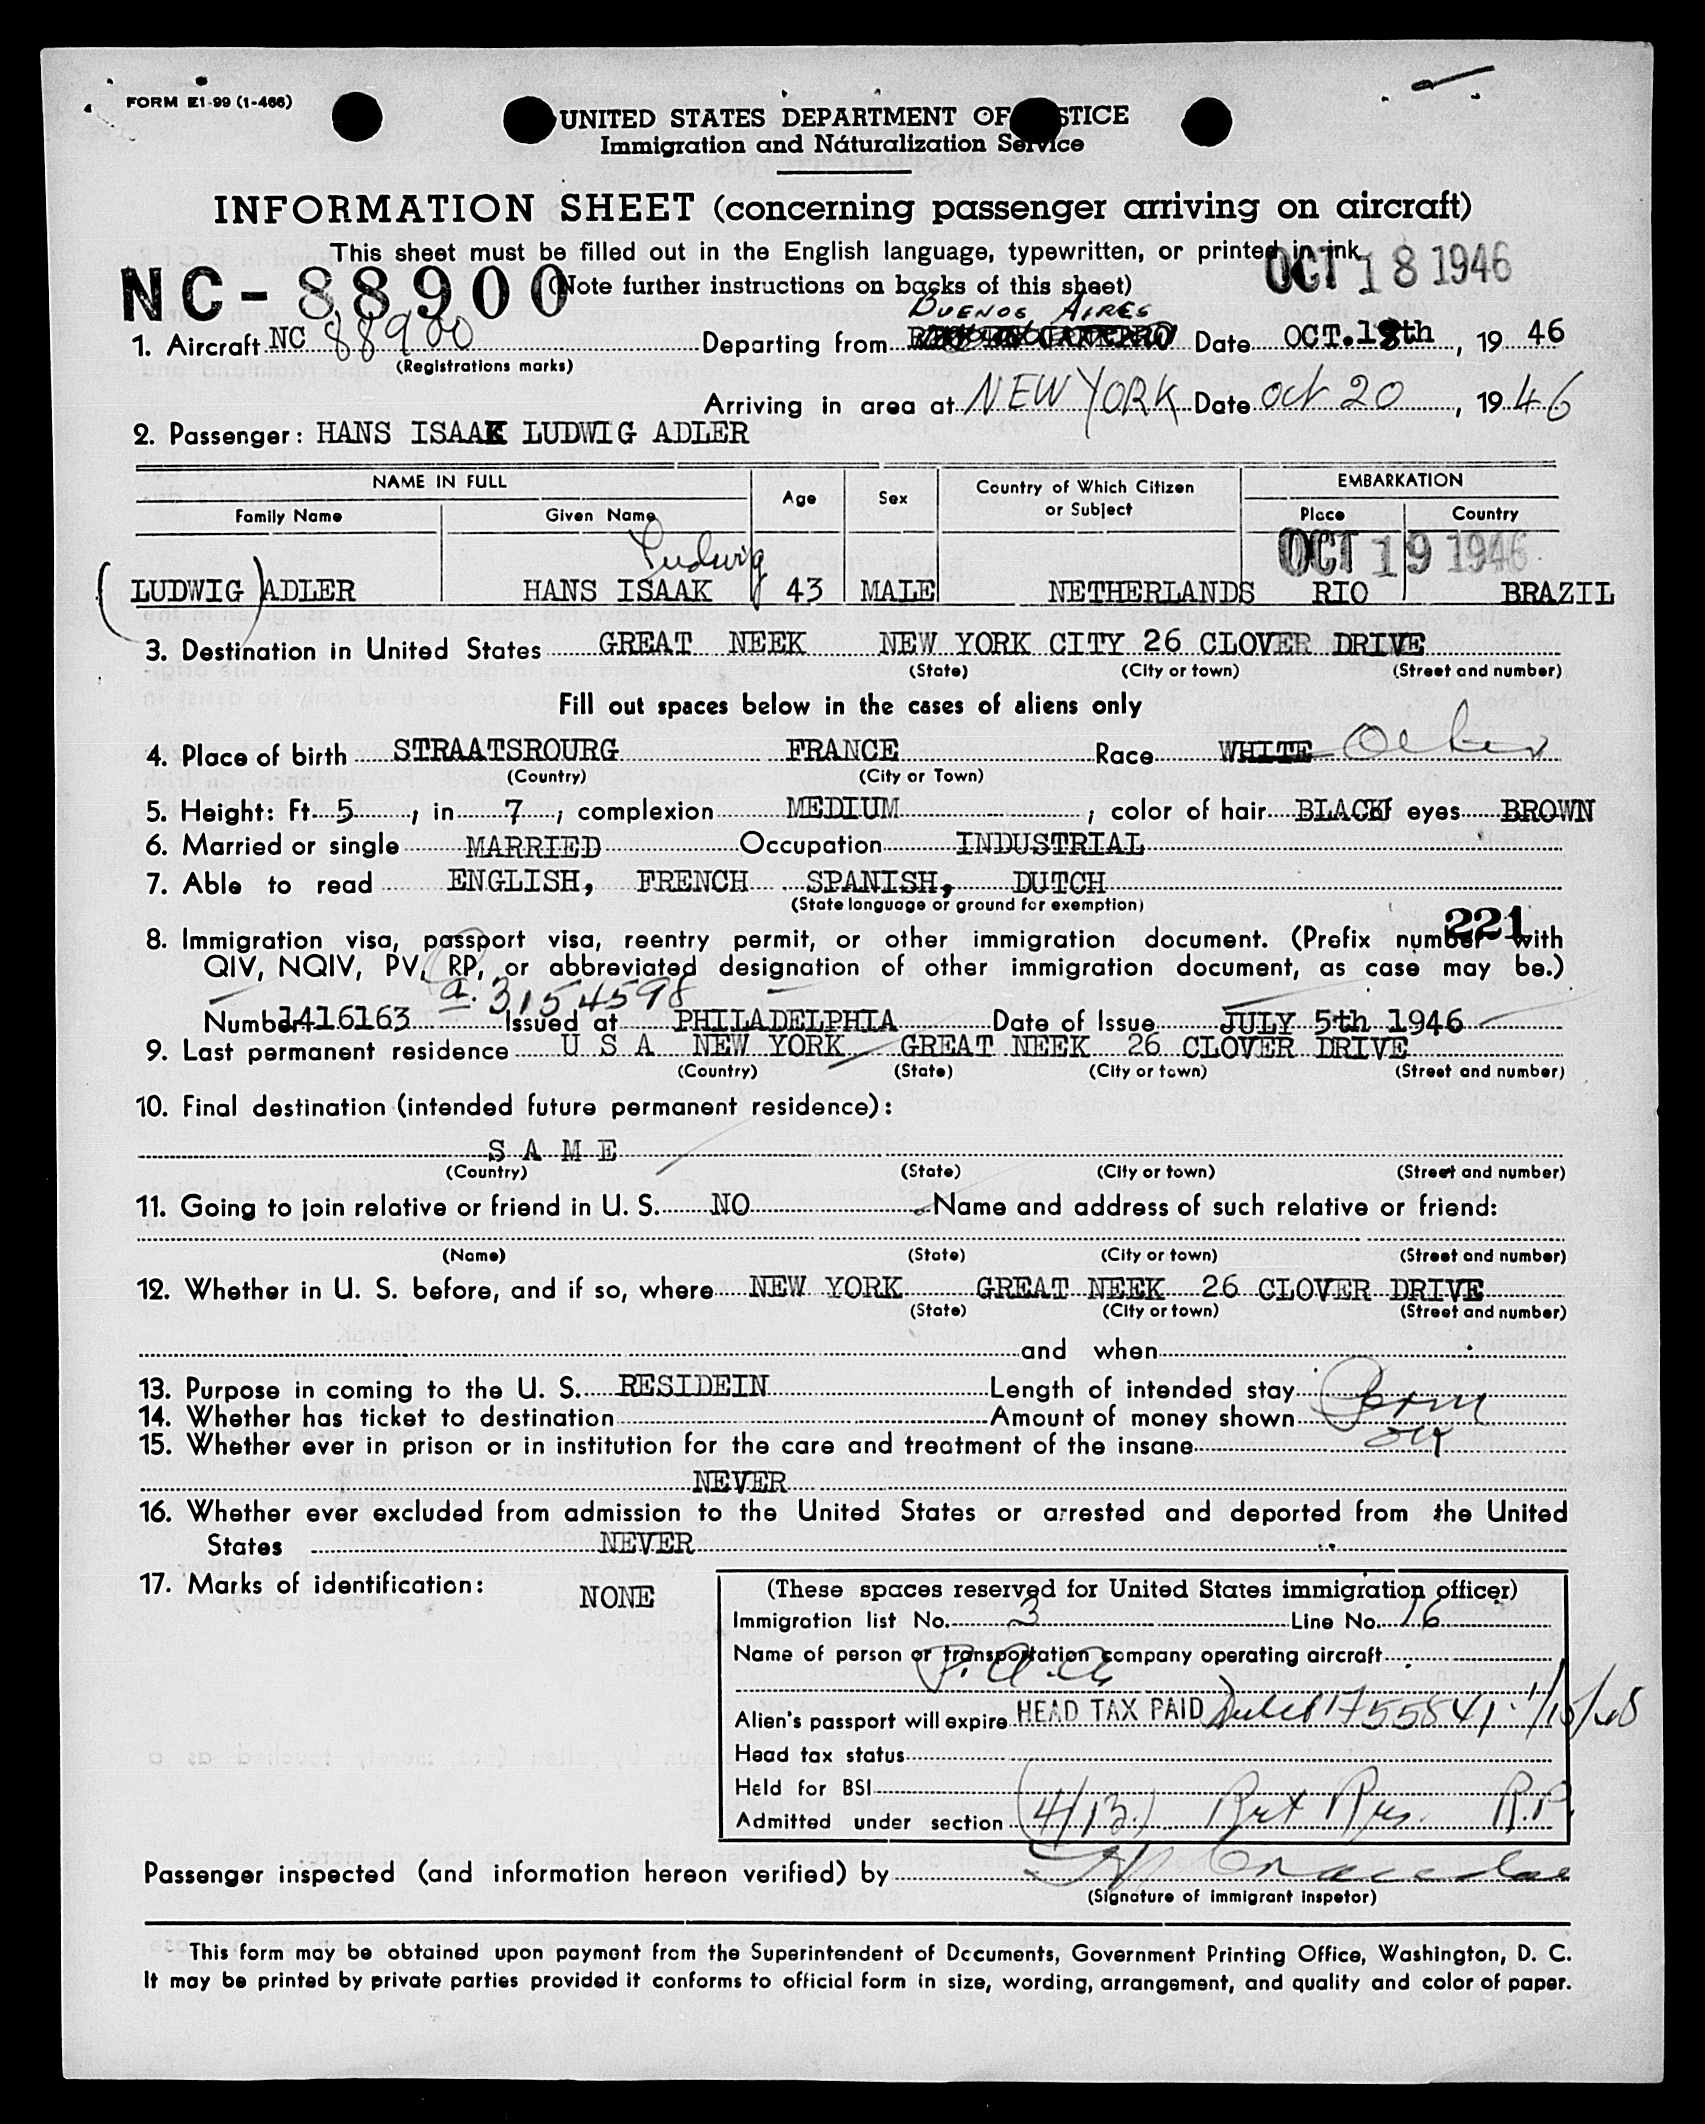 FORM E1-99 (1-466)
UNITED STATES DEPARTMENT OF STICE
Immigration and Naturalization Service
INFORMATION SHEET (concerning passenger arriving on aircraft)
This sheet must be filled out in the English language, typewritten, or printed in ink.
OCT 18 1946
NC-88900
(Note further instructions on backs of this sheet)
BUENOS AIRES
1. Aircraft NC 88900 Departing from Date OCT.18th, 19 46
(Registrations marks)
Arriving in area at NEW YORK Date Oct 20, 1946
2. Passenger: HANS ISAAK LUDWIG ADLER
NAME IN FULL Age Sex Country of Which Citizen or Subject EMBARKATION
Family Name Given Name Place Country
Ludwig OCT 19 1946
(LUDWIG) ADLER HANS ISAAK 43 MALE NETHERLANDS RIO BRAZIL
3. Destination in United States GREAT NEEK NEW YORK CITY 26 CLOVER DRIVE
(State) (City or town) (Street and number)
Fill out spaces below in the cases of aliens only
4. Place of birth STRAATSROURG FRANCE Race WHITE
(Country) (City or Town)
5. Height: Ft. 5, in. 7; complexion MEDIUM; color of hair BLACK eyes BROWN
6. Married or single MARRIED Occupation INDUSTRIAL
7. Able to read ENGLISH, FRENCH SPANISH, DUTCH
(State language or ground for exemption)
221
8. Immigration visa, passport visa, reentry permit, or other immigration document. (Prefix number with
QIV, NQIV, PV, RP, or abbreviated designation of other immigration document, as case may be.)
a. 3154598
Number 1416163 Issued at PHILADELPHIA Date of Issue JULY 5th 1946
9. Last permanent residence U S A NEW YORK GREAT NEEK 26 CLOVER DRIVE
(Country) (State) (City or town) (Street and number)
10. Final destination (intended future permanent residence):
S A M E
(Country) (State) (City or town) (Street and number)
11. Going to join relative or friend in U. S. NO Name and address of such relative or friend:
(Name) (State) (City or town) (Street and number)
12. Whether in U. S. before, and if so, where NEW YORK GREAT NEEK 26 CLOVER DRIVE
(State) (City or town) (Street and number)
and when
13. Purpose in coming to the U. S. RESIDEIN Length of intended stay Perm
14. Whether has ticket to destination Amount of money shown
15. Whether ever in prison or in institution for the care and treatment of the insane
NEVER
16. Whether ever excluded from admission to the United States or arrested and deported from the United
States NEVER
17. Marks of identification: NONE
(These spaces reserved for United States immigration officer)
Immigration list No. 3 Line No. 16
Name of person or transportation company operating aircraft
P.A.A.
Alien's passport will expire HEAD TAX PAID 1755841
Head tax status
Held for BSI
Admitted under section (4/13.) Ret Res. R.P.
Passenger inspected (and information hereon verified) by
(Signature of immigrant inspetor)
This form may be obtained upon payment from the Superintendent of Documents, Government Printing Office, Washington, D. C.
It may be printed by private parties provided it conforms to official form in size, wording, arrangement, and quality and color of paper.